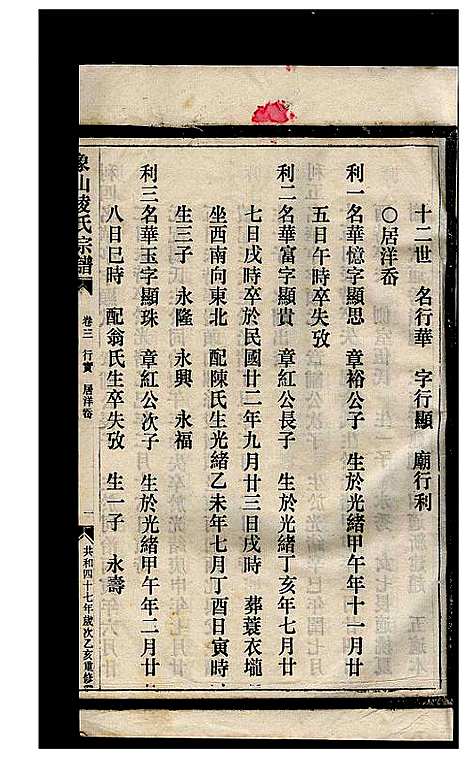 十二世　名行華　字行顯　廟行利
〇居洋岙
利一名華憶字顯思　章裕公子　生於光緒甲午年十一月廿
五日午時卒失攷
利二名華富字顯貴　章紅公長子　生於光緒丁亥年七月廿
七日戌時卒於民國廿二年九月廿三日戌時　葬蓑衣壠
坐西南向東北　配陳氏生光緒乙未年七月丁酉日寅時
生三子　永隆　永興　永福
利三名華玉字顯珠　章紅公次子　生於光緒甲午年二月廿
八日巳時　配翁氏生卒失攷　生一子　永壽
象山陵氏宗譜
卷三　行實　居洋岙
一
共和四十七年歲次乙亥重修